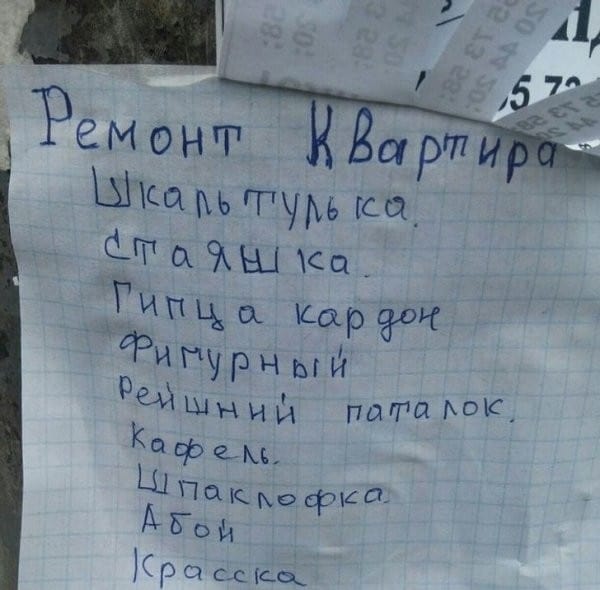 Ремонт Квартира
Шкальтулька.
стаяшка.
Гипца кардон
Фигурный
рейшний паталок.
Кафель.
Шпаклофка
Абой
Красска